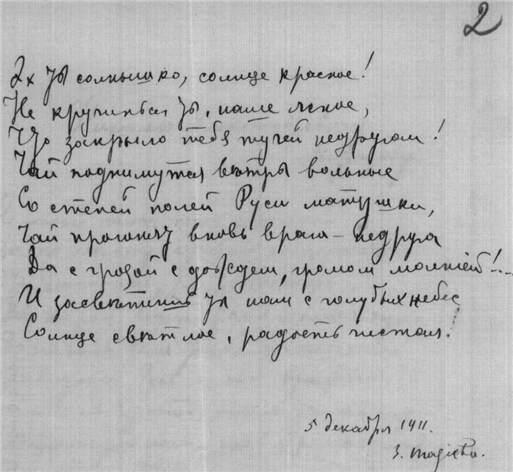 2
Эх ты солнышко, солнце красное!
Не кручинься ты, наше ясное,
Что закрыло тебя тучей недругом!
Чай поднимутся вѣтры вольные
Со степей полей Руси матушки,
Чай прогонят вновь врага-недруга
Да с грозой с дождем, громом молніей!...
И засвѣтишь ты нам с голубых небес
Солнце свѣтлое, радость чистая!
5 декабря 1911.